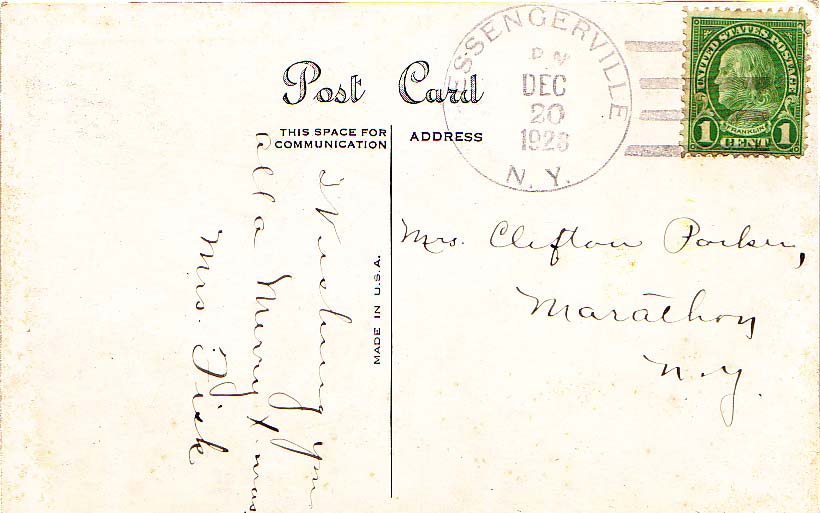 Post Card
THIS SPACE FOR
COMMUNICATION
ADDRESS
ESSENGERVILLE
DEC
20
N. Y.
UNITED STATES POSTAGE
FRANKLIN
1 CENT 1
Mrs. Clifton Parker,
Marathon
N.Y.
MADE IN U.S.A.
Wishing you
all a Merry Xmas
Mrs. Fisk